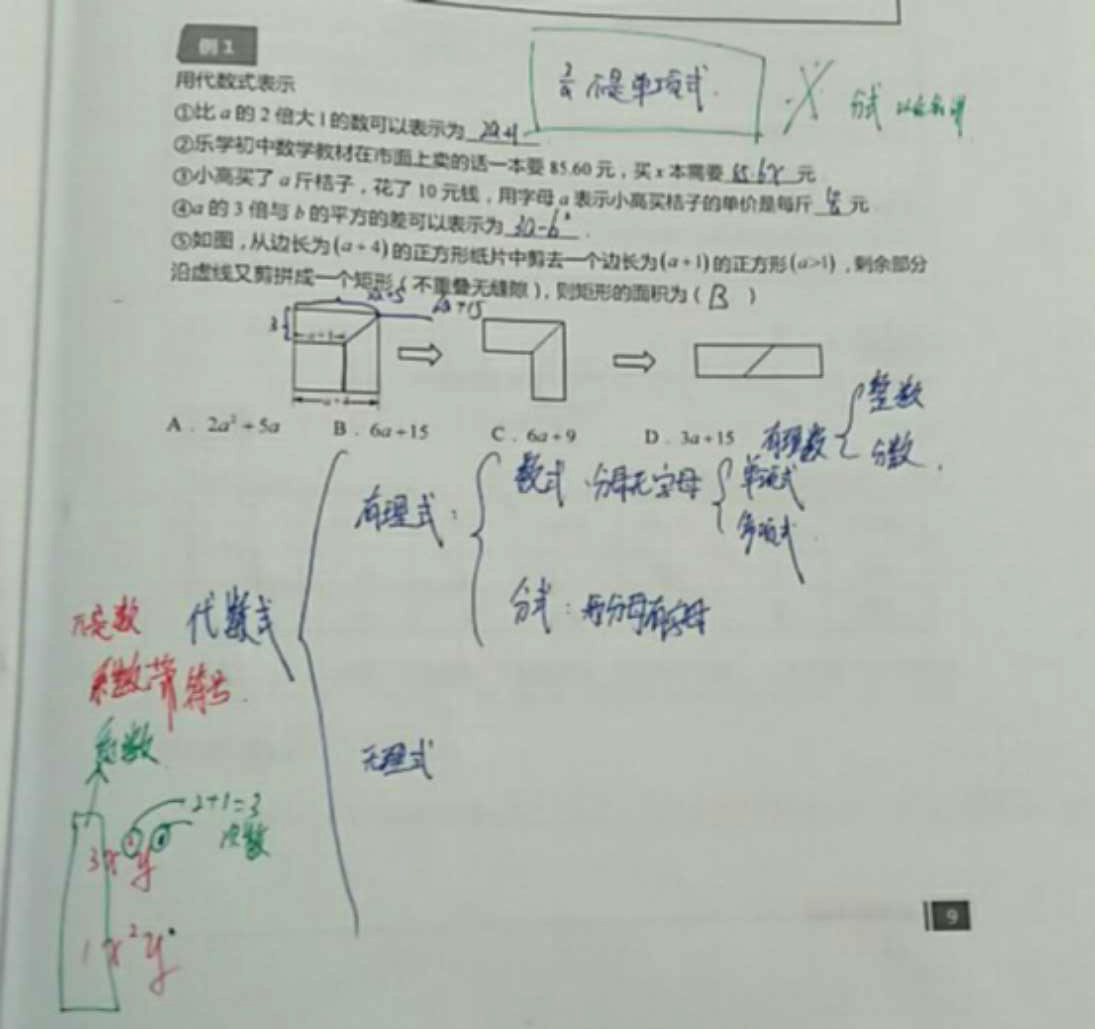 例1
2/a 不是单项式.
分式
用代数式表示
①比 a 的 2 倍大 1 的数可以表示为 2a+1
②乐学初中数学教材在市面上卖的话一本要 85.60 元，买 x 本需要 85.6x 元
③小高买了 a 斤桔子，花了 10 元钱，用字母 a 表示小高买桔子的单价是每斤 10/a 元.
④a 的 3 倍与 b 的平方的差可以表示为 3a-b² .
⑤如图，从边长为(a+4)的正方形纸片中剪去一个边长为(a+1)的正方形(a>1)，剩余部分
沿虚线又剪拼成一个矩形（不重叠无缝隙），则矩形的面积为（ B ）
2a+5
6a+15
3
a+1
a+4
A． 2a²+5a B． 6a+15 C． 6a+9 D． 3a+15
有理数 整数
分数
代数式
有理式：
数式 分母无字母 单项式
多项式
分式：分母有字母
无理式
系数带符号.
系数
2+1=3
次数
3x²y
1x²y
9